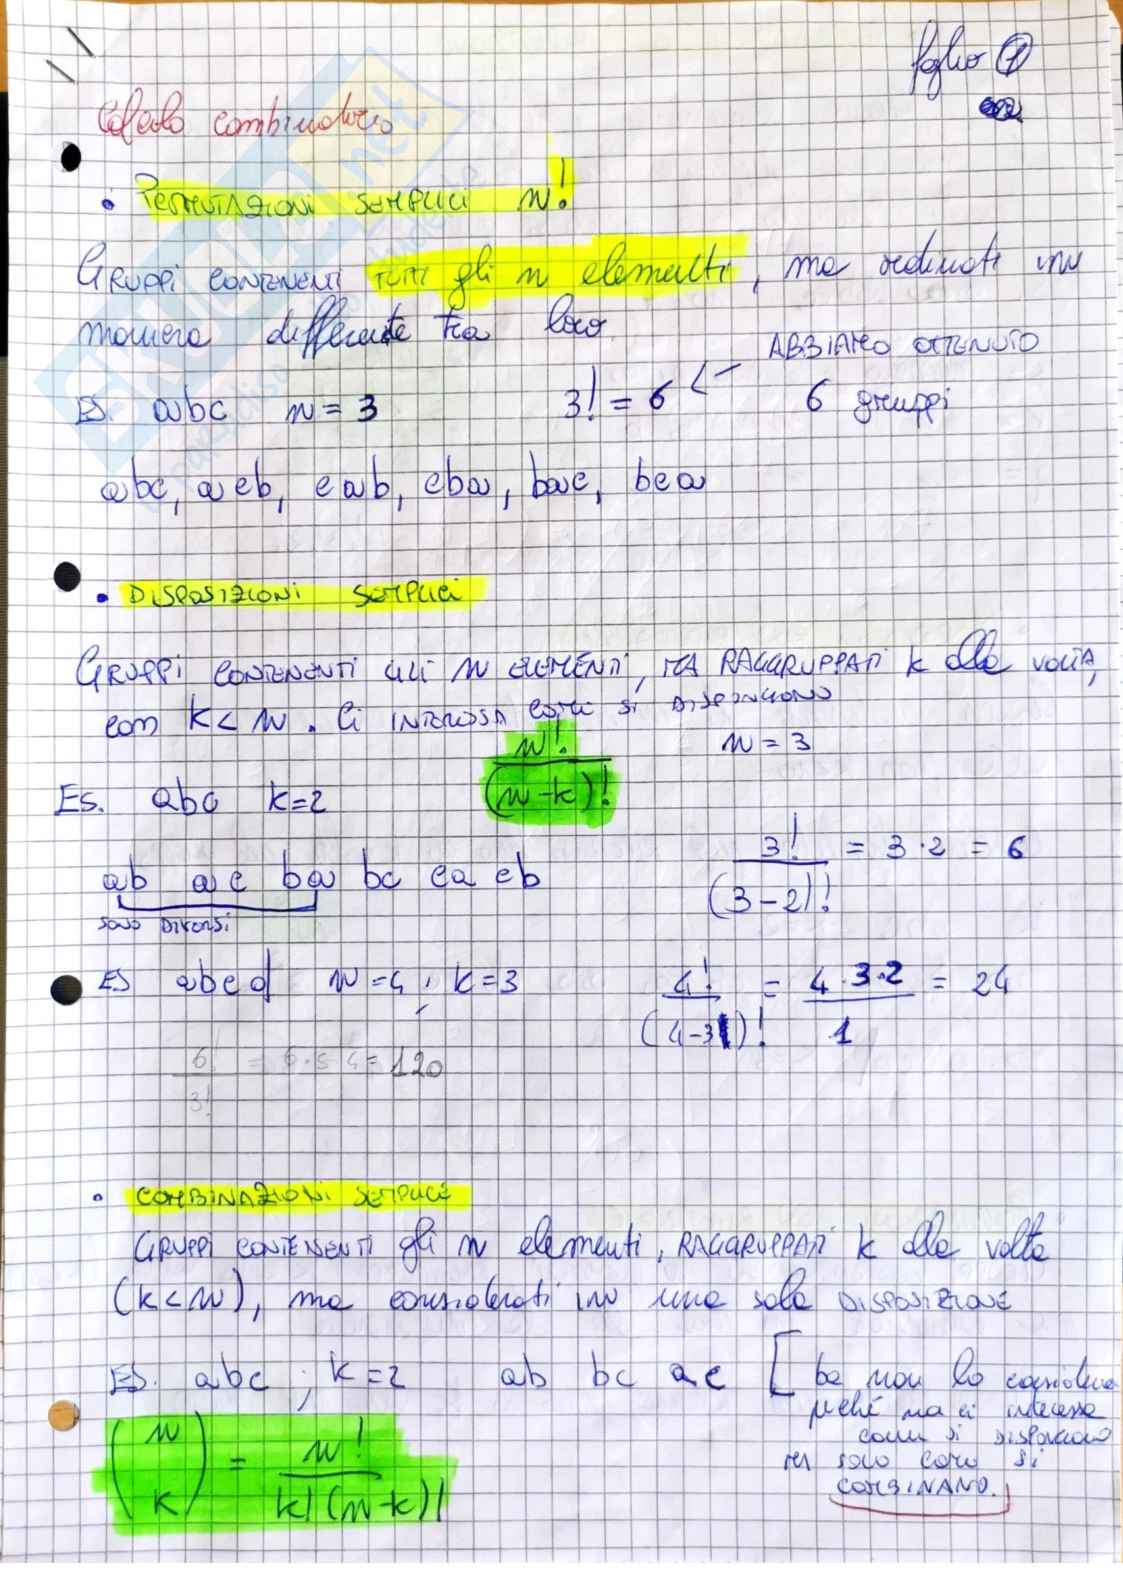 foglio 1
Calcolo combinatorio
• PERMUTAZIONI SEMPLICI n!
GRUPPI CONTENENTI TUTTI gli n elementi, ma ordinati in
maniera differente tra loro.
ABBIAMO OTTENUTO
ES. abc n=3 3! = 6 <- 6 gruppi
abc, acb, cab, cba, bac, bca
• DISPOSIZIONI SEMPLICI
GRUPPI CONTENENTI GLI N ELEMENTI, MA RAGGRUPPATI K alla VOLTA,
con K < N. Ci INTERESSA COME SI DISPONGONO
n!/(n-k)! n=3
Es. abc k=2
3!/(3-2)! = 3·2 = 6
ab ac ba bc ca cb
SONO DIVERSI
ES abcd n=4, k=3 4!/(4-3)! = 4·3·2/1 = 24
6!/3! = 6·5·4 = 120
• COMBINAZIONI SEMPLICE
GRUPPI CONTENENTI gli n elementi, RAGGRUPPATI k alla volta
(k<N), ma considerati in una sola DISPOSIZIONE
ES. abc ; k=2 ab bc ac [ ba non lo considero
perché non ci interessa
come si DISPONGONO
MA solo come si
COMBINANO.
(n k) = n!/k!(n-k)!